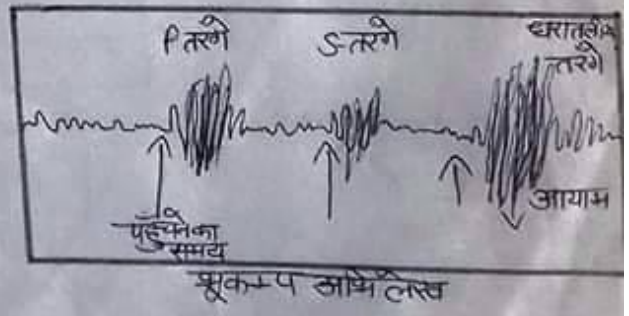 P तरंगे
S-तरंगे
धरातलीय
तरंगे
पहुँचने का
समय
आयाम
भूकम्प अभिलेख